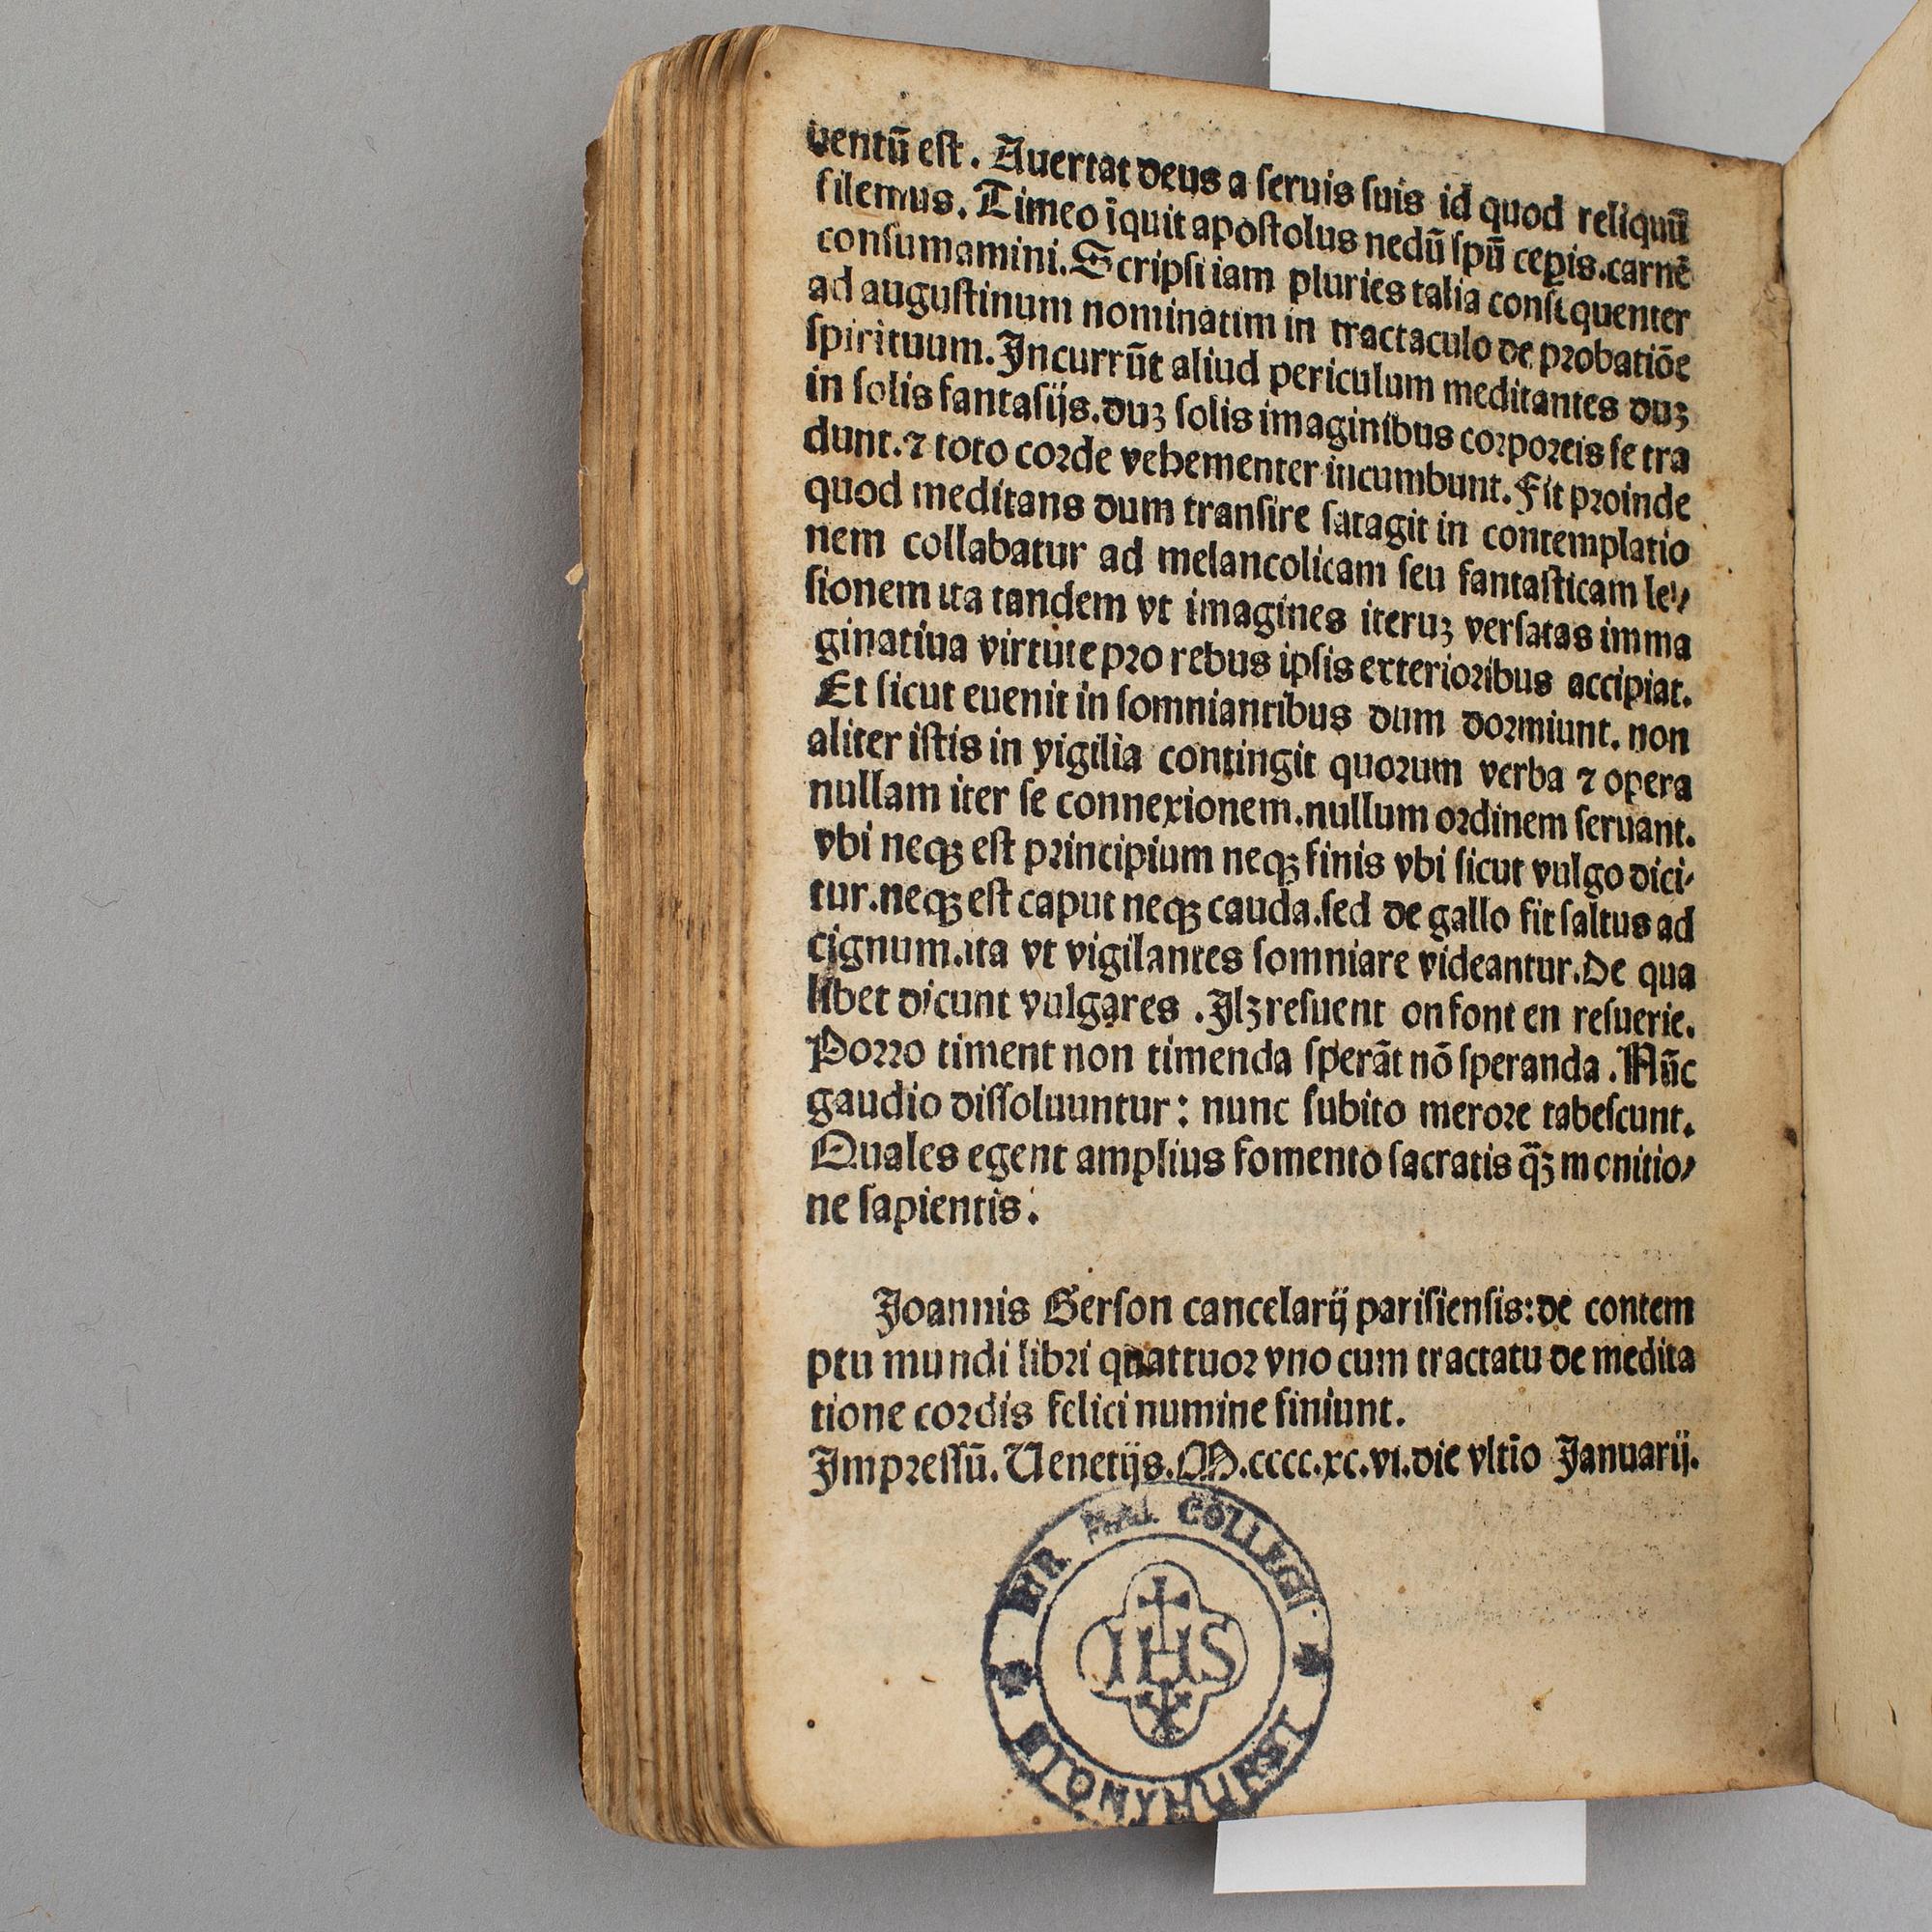 uentū est. Auertat deus a seruis suis id quod reliquū
silemus. Timeo īquit apostolus nedū spū cepis. carnē
consumamini. Scripsi iam pluries talia consequenter
ad augustinum nominatim in tractaculo de probatiōe
spirituum. Incurrūt aliud periculum meditantes duꝫ
in solis fantasijs. duꝫ solis imaginibus corporeis se tra
dunt. ⁊ toto corde vehementer incumbunt. Fit proinde
quod meditans dum transire satagit in contemplatio
nem collabatur ad melancolicam seu fantasticam le⸗
sionem ita tandem vt imagines iteruꝫ versatas imma
ginatiua virtute pro rebus ipsis exterioribus accipiat.
Et sicut euenit in somniantibus dum dormiunt. non
aliter istis in vigilia contingit quorum verba ⁊ opera
nullam iter se connexionem. nullum ordinem seruant.
vbi neqꝫ est principium neqꝫ finis vbi sicut vulgo dici⸗
tur. neqꝫ est caput neqꝫ cauda. sed de gallo fit saltus ad
cignum. ita vt vigilantes somniare videantur. De qua
libet dicunt vulgares . Ilꝫ resuent on font en resuerie.
Porro timent non timenda sperāt nō speranda . Nūc
gaudio dissoluuntur : nunc subito merore tabescunt.
Quales egent amplius fomento sacratis q̄ꝫ monitio⸗
ne sapientis.
Joannis Gerson cancelarij parisiensis: de contem
ptu mundi libri quattuor vno cum tractatu de medita
tione cordis felici numine finiunt.
Impressū. Uenetijs. M.cccc.xc.vi. die vltīo Januarij.
COLLEGI
IHS